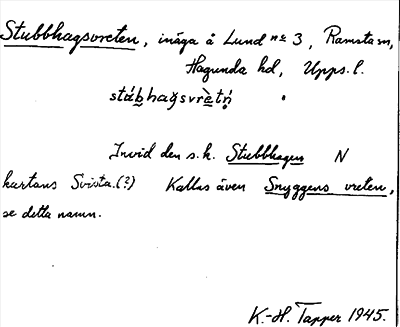 Stubbhagsvreten, inäga å Lund nr 3, Ramsta sn,
Hagunda hd, Upps. l.
Invid den s.k. Stubbhagen N
kartans Svista.(?) Kallas även Snyggens vreten,
se detta namn.
K.-H. Tapper 1945.